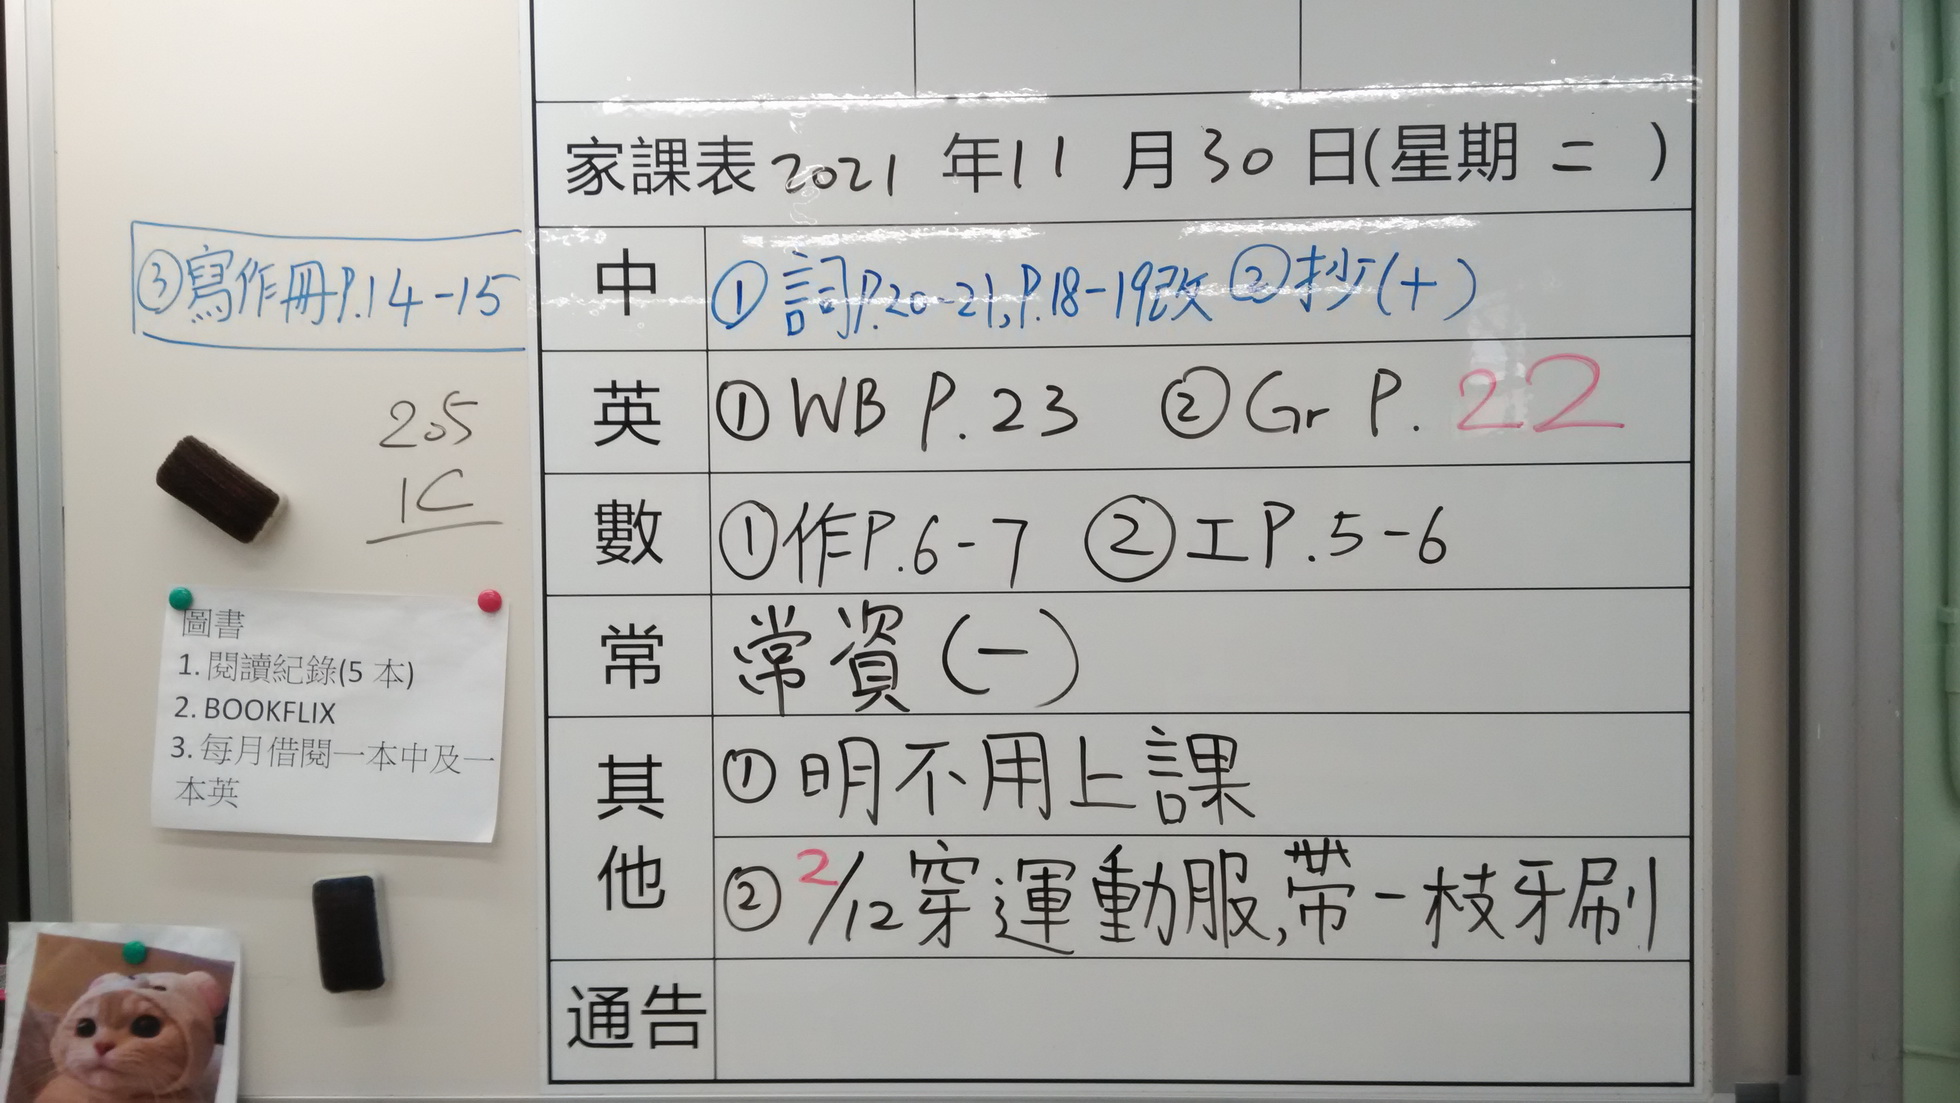 家課表 2021 年 11 月 30 日(星期 二 )
中 ① 詞P.20-21,P.18-19改 ② 抄(十)
③寫作冊P.14-15
英 ① WB P.23 ② Gr P. 22
數 ①作P.6-7 ②工P.5-6
常 常資(一)
其他 ① 明不用上課
② 2/12穿運動服,帶一枝牙刷
通告
205
1C
圖書
1. 閱讀紀錄(5 本)
2. BOOKFLIX
3. 每月借閱一本中及一
本英